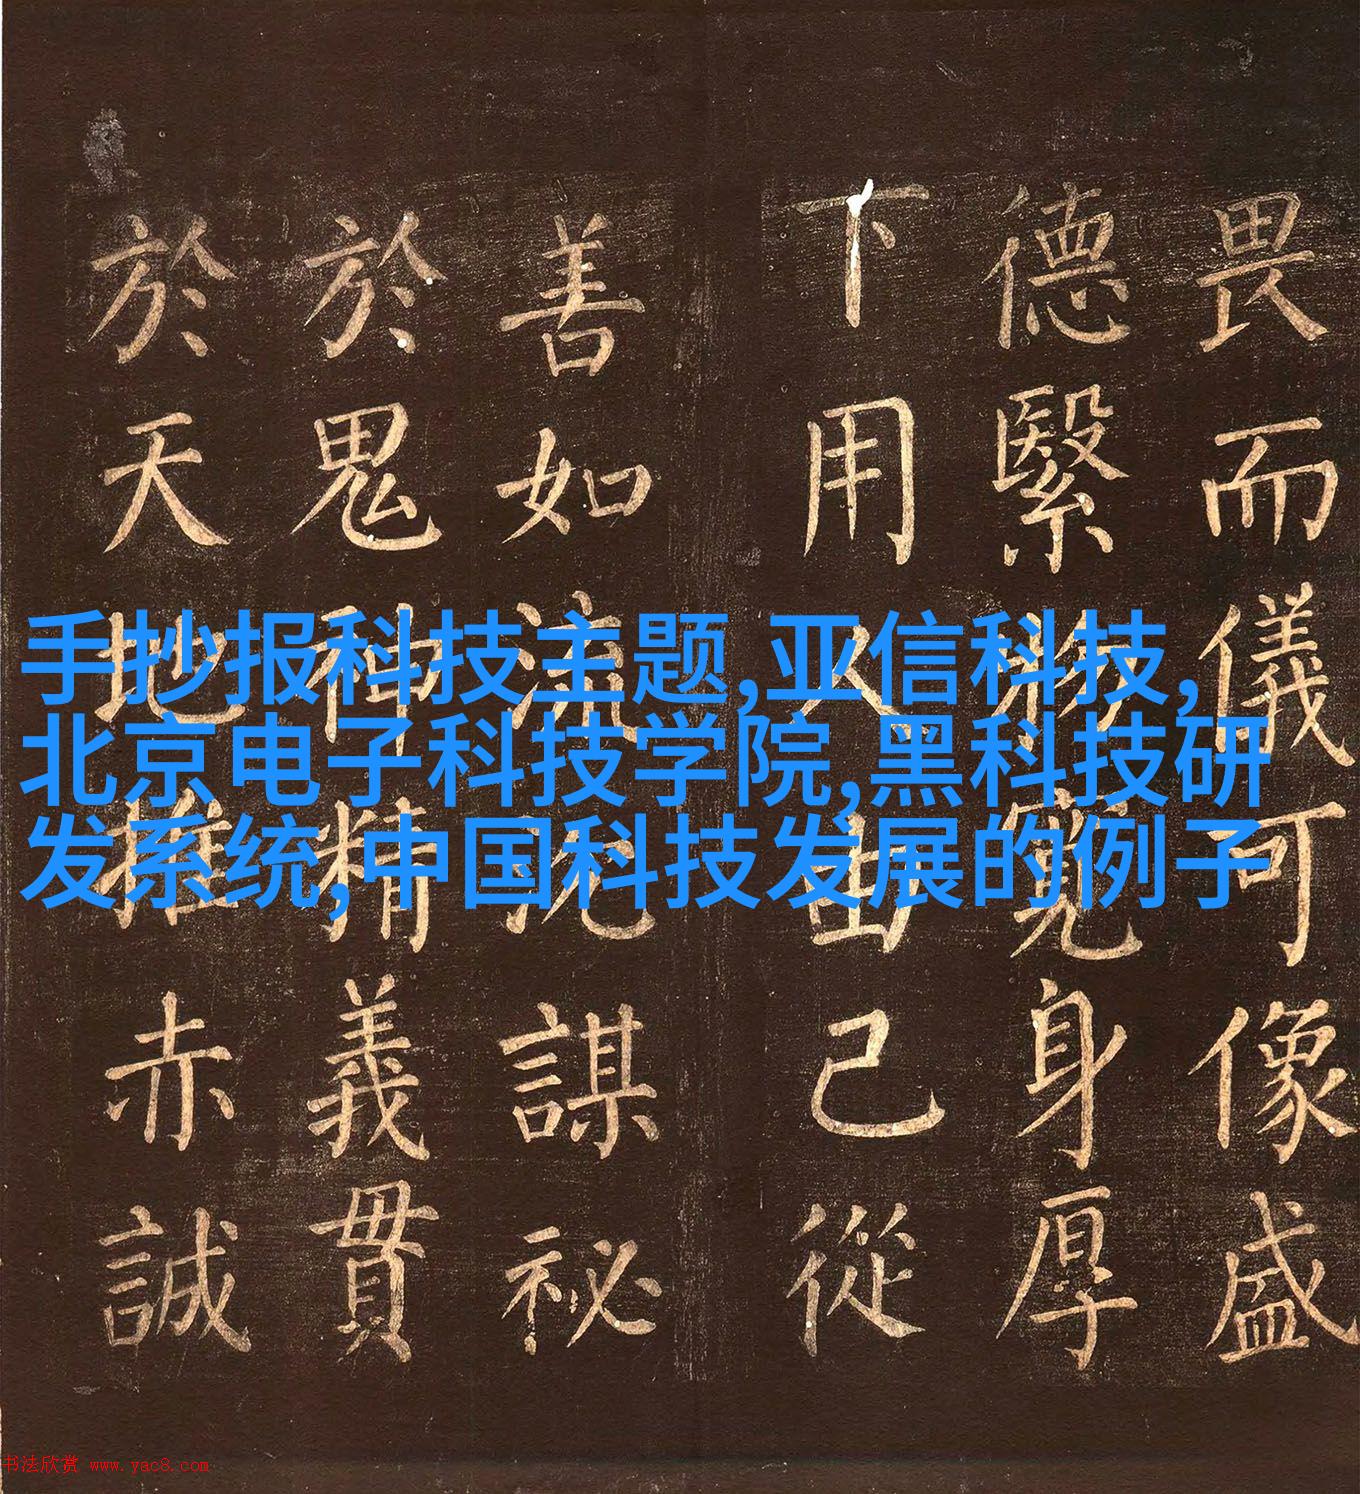 畏而儀可像盛
德繄物寬身厚
下用人由己從
善如流沉謀祕
於鬼神精義貫
於天地推赤誠
手抄报科技主题,亚信科技,
北京电子科技学院,黑科技研
发系统,中国科技发展的例子
书法欣赏 www.yac8.com